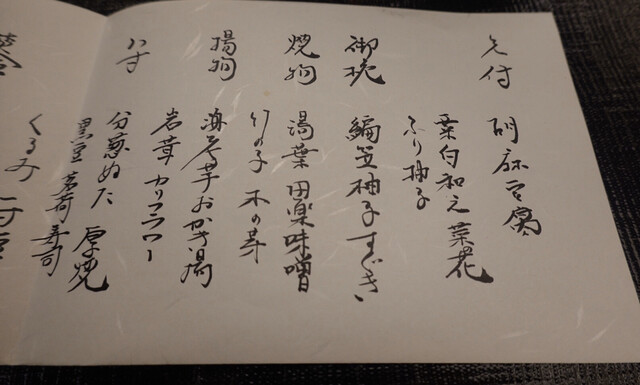 先付 胡麻豆腐
菜白和え 菜花
ふり柚子
御椀 編笠柚子 すぐき
焼物 湯葉 田楽味噌
竹の子 木の芽
揚物 海老芋おかき揚
岩茸 カリフラワー
八寸 分葱ぬた 厚焼
黒豆 茗荷寿司
くるみ